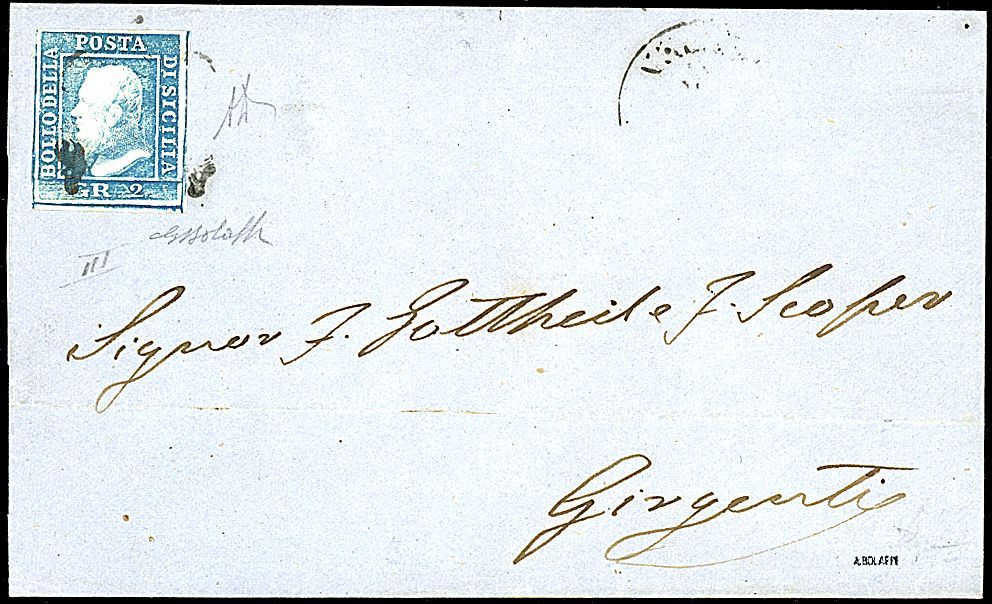 POSTA
BOLLO DELLA
DI SICILIA
GR 2
III
Signor F. Gottheil e F. Scoper
Girgenti
A. BOLAFFI